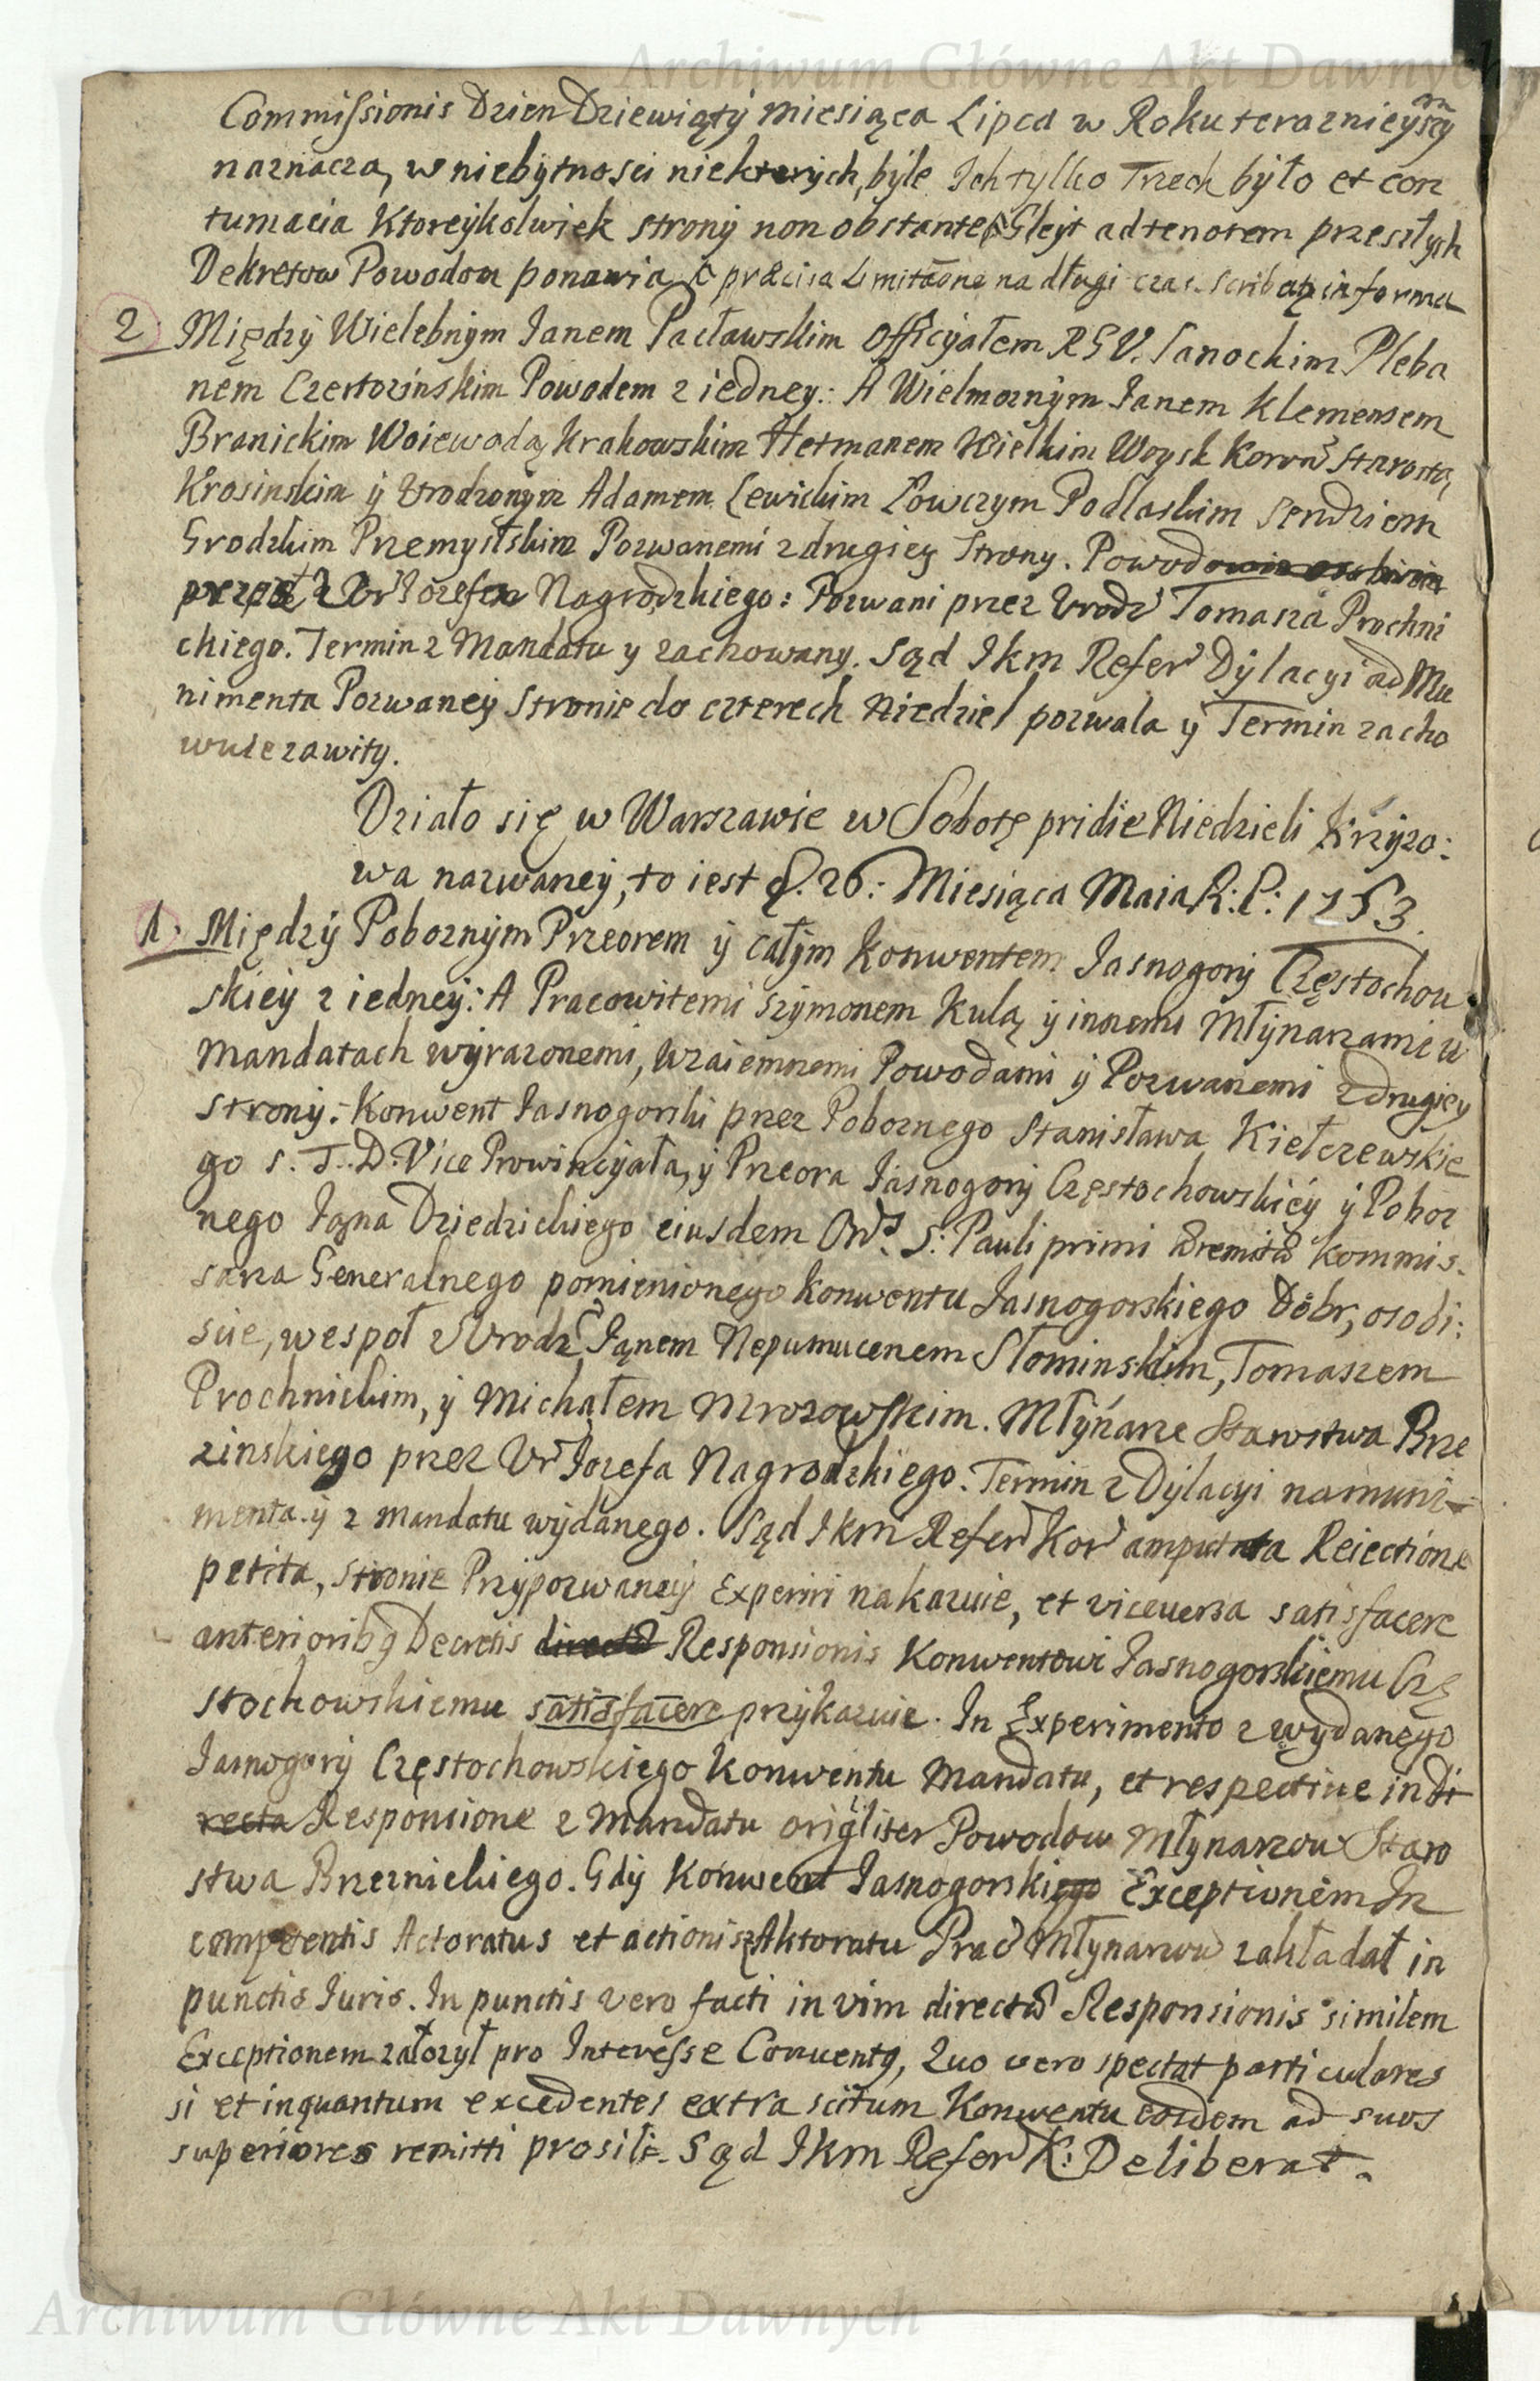 Archiwum Główne Akt Dawnych
Commissionis Dzien Dziewiąty Miesiąca Lipca w Roku teraznieyszym
naznacza, w niebytnosci niektorych, byle Ich tylko Trzech było et con
tumacia Ktoreykolwiek strony non obstante, Gleyt ad tenorem przeszłych
Dekretow Powodom ponawia, praecisa Limitaõne na długi czas. Scribatq informa
2 Między Wielebnym Janem Pacławskim Officyałem RGV. Sanockim Pleba
nem Czertozinskim Powodem z iedney: A Wielmoznym Janem Klemensem
Branickim Woiewodą Krakowskim Hetmanem Wielkim Woysk Koronn Starostą
Krosinskim y Urodzonym Adamem Lewickim Łowczym Podlaskim Sendziem
Grodzkim Przemyslskim Pozwanemi z drugiey Strony. Powod
przez Ur Jozefa Nagrodzkiego: Pozwani przez Urodz Tomasza Prochni
ckiego. Termin z Mandatu y zachowany. Sąd Jkm Refer Dylacyi ad Mu
nimenta Pozwaney Stronie do czterech Niedziel pozwala y Termin zacho
wuie zawity.
Działo się w Warszawie w Sobotę pridie Niedzieli Krzyzo:
wa nazwaney, to iest d. 26: Miesiąca Maia R: P: 1753.
1. Między Poboznym Przeorem y całym Konwentem Jasnogory Częstochow
skiey z iedney: A Pracowitemi Szymonem Kulą y innemi Młynarzami w
Mandatach wyrazonemi, wzaiemnemi Powodami y Pozwanemi z drugiey
strony: Konwent Jasnogorski przez Poboznego Stanisława Kiełczewskie
go S. T. D. Vice Prowincyała, y Przeora Jasnogory Częstochowskiey y Poboz
nego Jana Dziedzickiego eiusdem Ords S: Pauli primi Eremitae Kommis.
sarza Generalnego pomienionego Konwentu Jasnogorskiego Dobr, osobi:
scie, wespoł z Urodz Janem Nepumucenem Słominskim, Tomaszem
Prochnickim, y Michałem Mrozowskim. Młynarze Starostwa Brze
zinskiego przez Ur Jozefa Nagrodzkiego. Termin z Dylacyi na muni
menta y z mandatu wydanego. Sąd Jkm Refer Kor amputata Reiectione
petita, stronie Przypozwaney Experiri nakazuie, et viceversa satisfacere
anterioribq Decretis Responsionis Konwentowi Jasnogorskiemu Czę
stochowskiemu satisfacere przykazuie. In Experimento z wydanego
Jasnogory Częstochowskiego Konwentu Mandatu, et respective in di
recta Responsione z Mandatu origliter Powodow Młynarzow Staro
stwa Brzeznickiego. Gdy Konwent Jasnogorski Exceptionem In
competentis Actoratus et actionis z Aktoratu Prac Młynarzow zakładał in
punctis Juris. In punctis vero facti in vim directae Responsionis similem
Exceptionem załozył pro Interesse Conventq, Quo vero spectat particulares
si et inquantum excedentes extra scitum Konwentu eosdem ad suos
superiores remitti prosiłi. Sąd Jkm Refer K: Deliberat.
Archiwum Główne Akt Dawnych